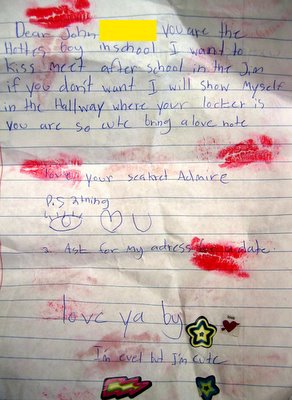 Dear John you are the
Hottes boy in school I want to
kiss meet after school in the Jim
if you don't want I will show myself
in the Hallway where your locker is
you are so cute bring a love note
Love your seakret Admire
P.S 2 thing
U
2. Ask for my adress for a date
love ya by
I'm evel but I'm cute